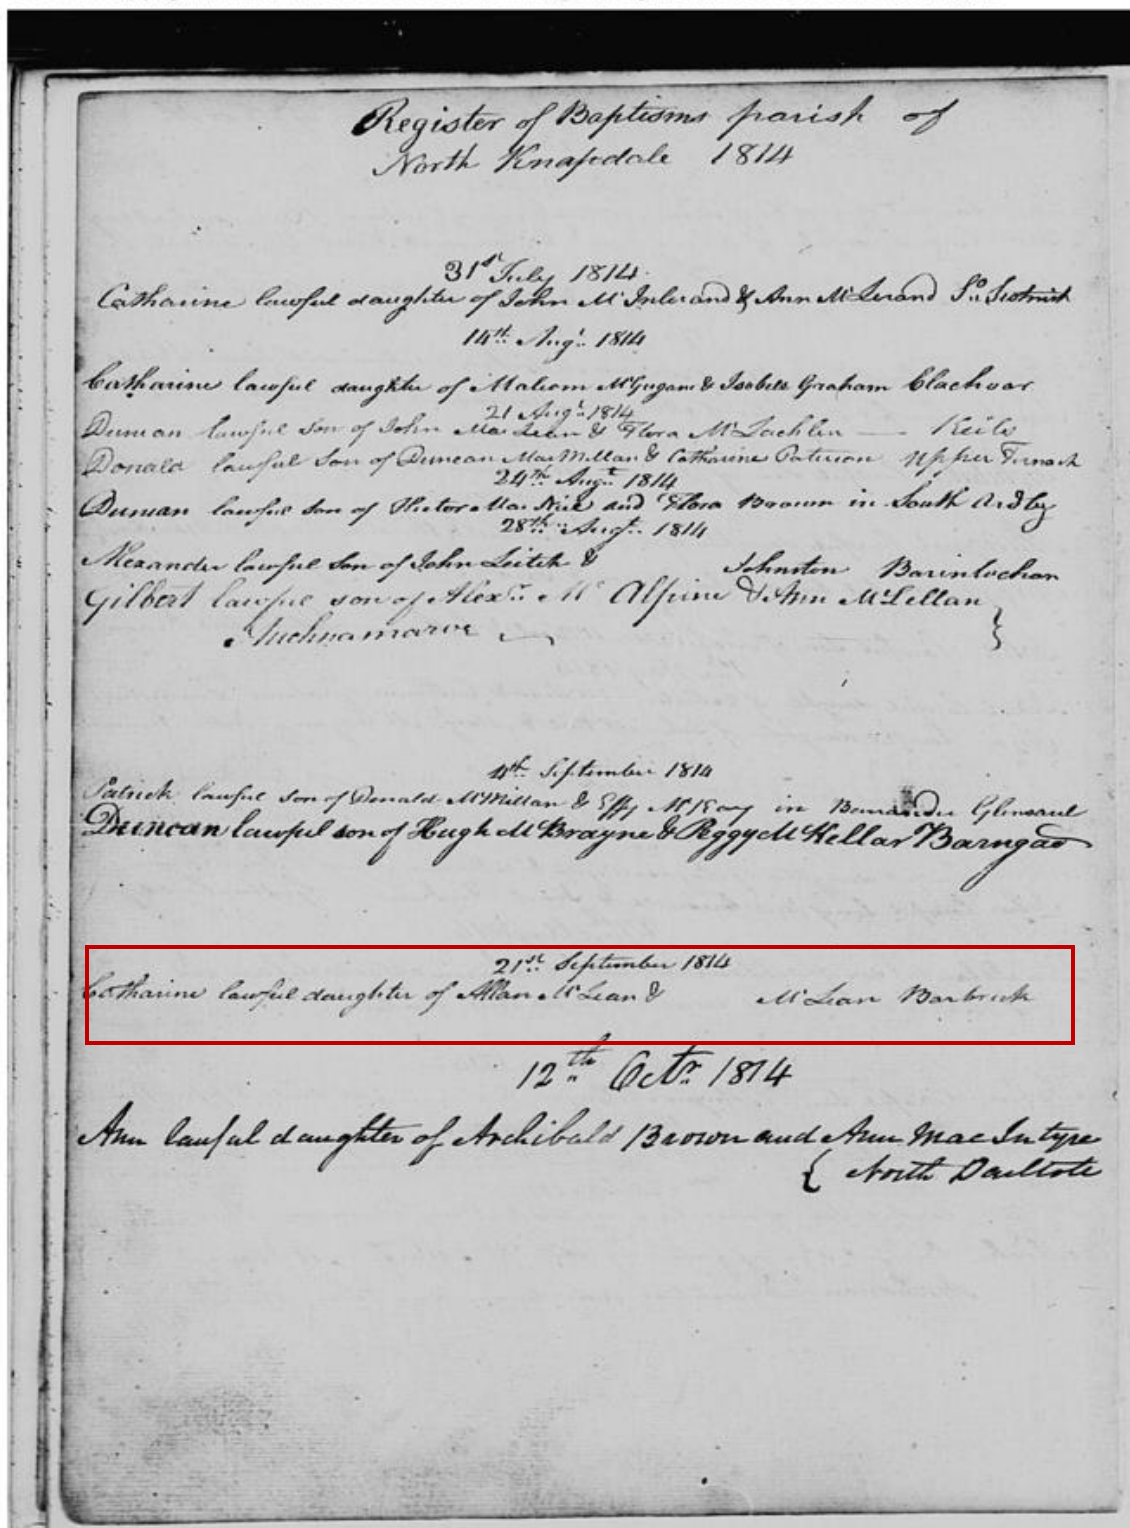 Register of Baptisms parish of
North Knapdale 1814
31st July 1814
Catharine lawful daughter of John & Ann So
14th Augt. 1814
Catharine lawful daughter of Malcom McGugan & Isabella Graham Clachvar
21 Augt. 1814
Duncan lawful son of John MacLean & Flora McLachlin Keils
Donald lawful Son of Duncan MacMillan & Catharine Paterson Upper
24th Augt 1814
Duncan lawful son of Hector Mac and Flora Brown in South
28th Augt. 1814
Alexander lawful Son of John Leitch & Johnston Barinlochan
Gilbert lawful son of Alexr. Mc Alpine & Ann McLellan
4th September 1814
Patrick lawful son of Donald McMillan & Effy in
Duncan lawful son of Hugh McBrayne & Peggy McKellar Barngad
21st September 1814
Catharine lawful daughter of Allan McLean & McLean Barbreck
12th Octr. 1814
Ann lawful daughter of Archibald Brown and Ann MacIntyre
North Daltote